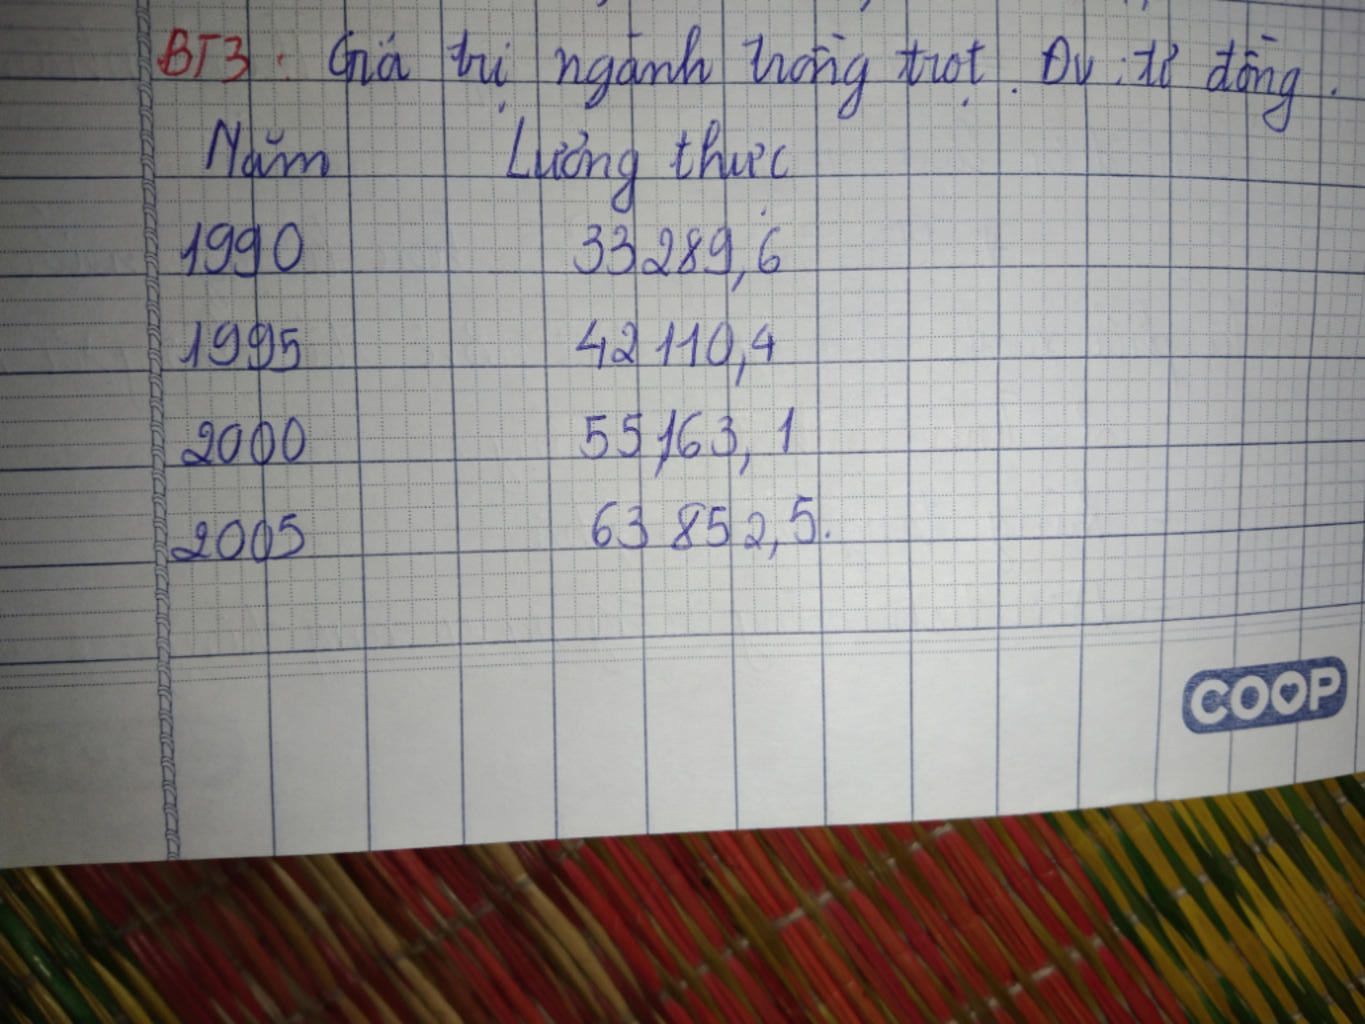 BT3: Giá trị ngành trồng trọt. Đv: tỉ đồng.
Năm Lương thực
1990 33 289,6
1995 42 110,4
2000 55 163,1
2005 63 852,5.
COOP